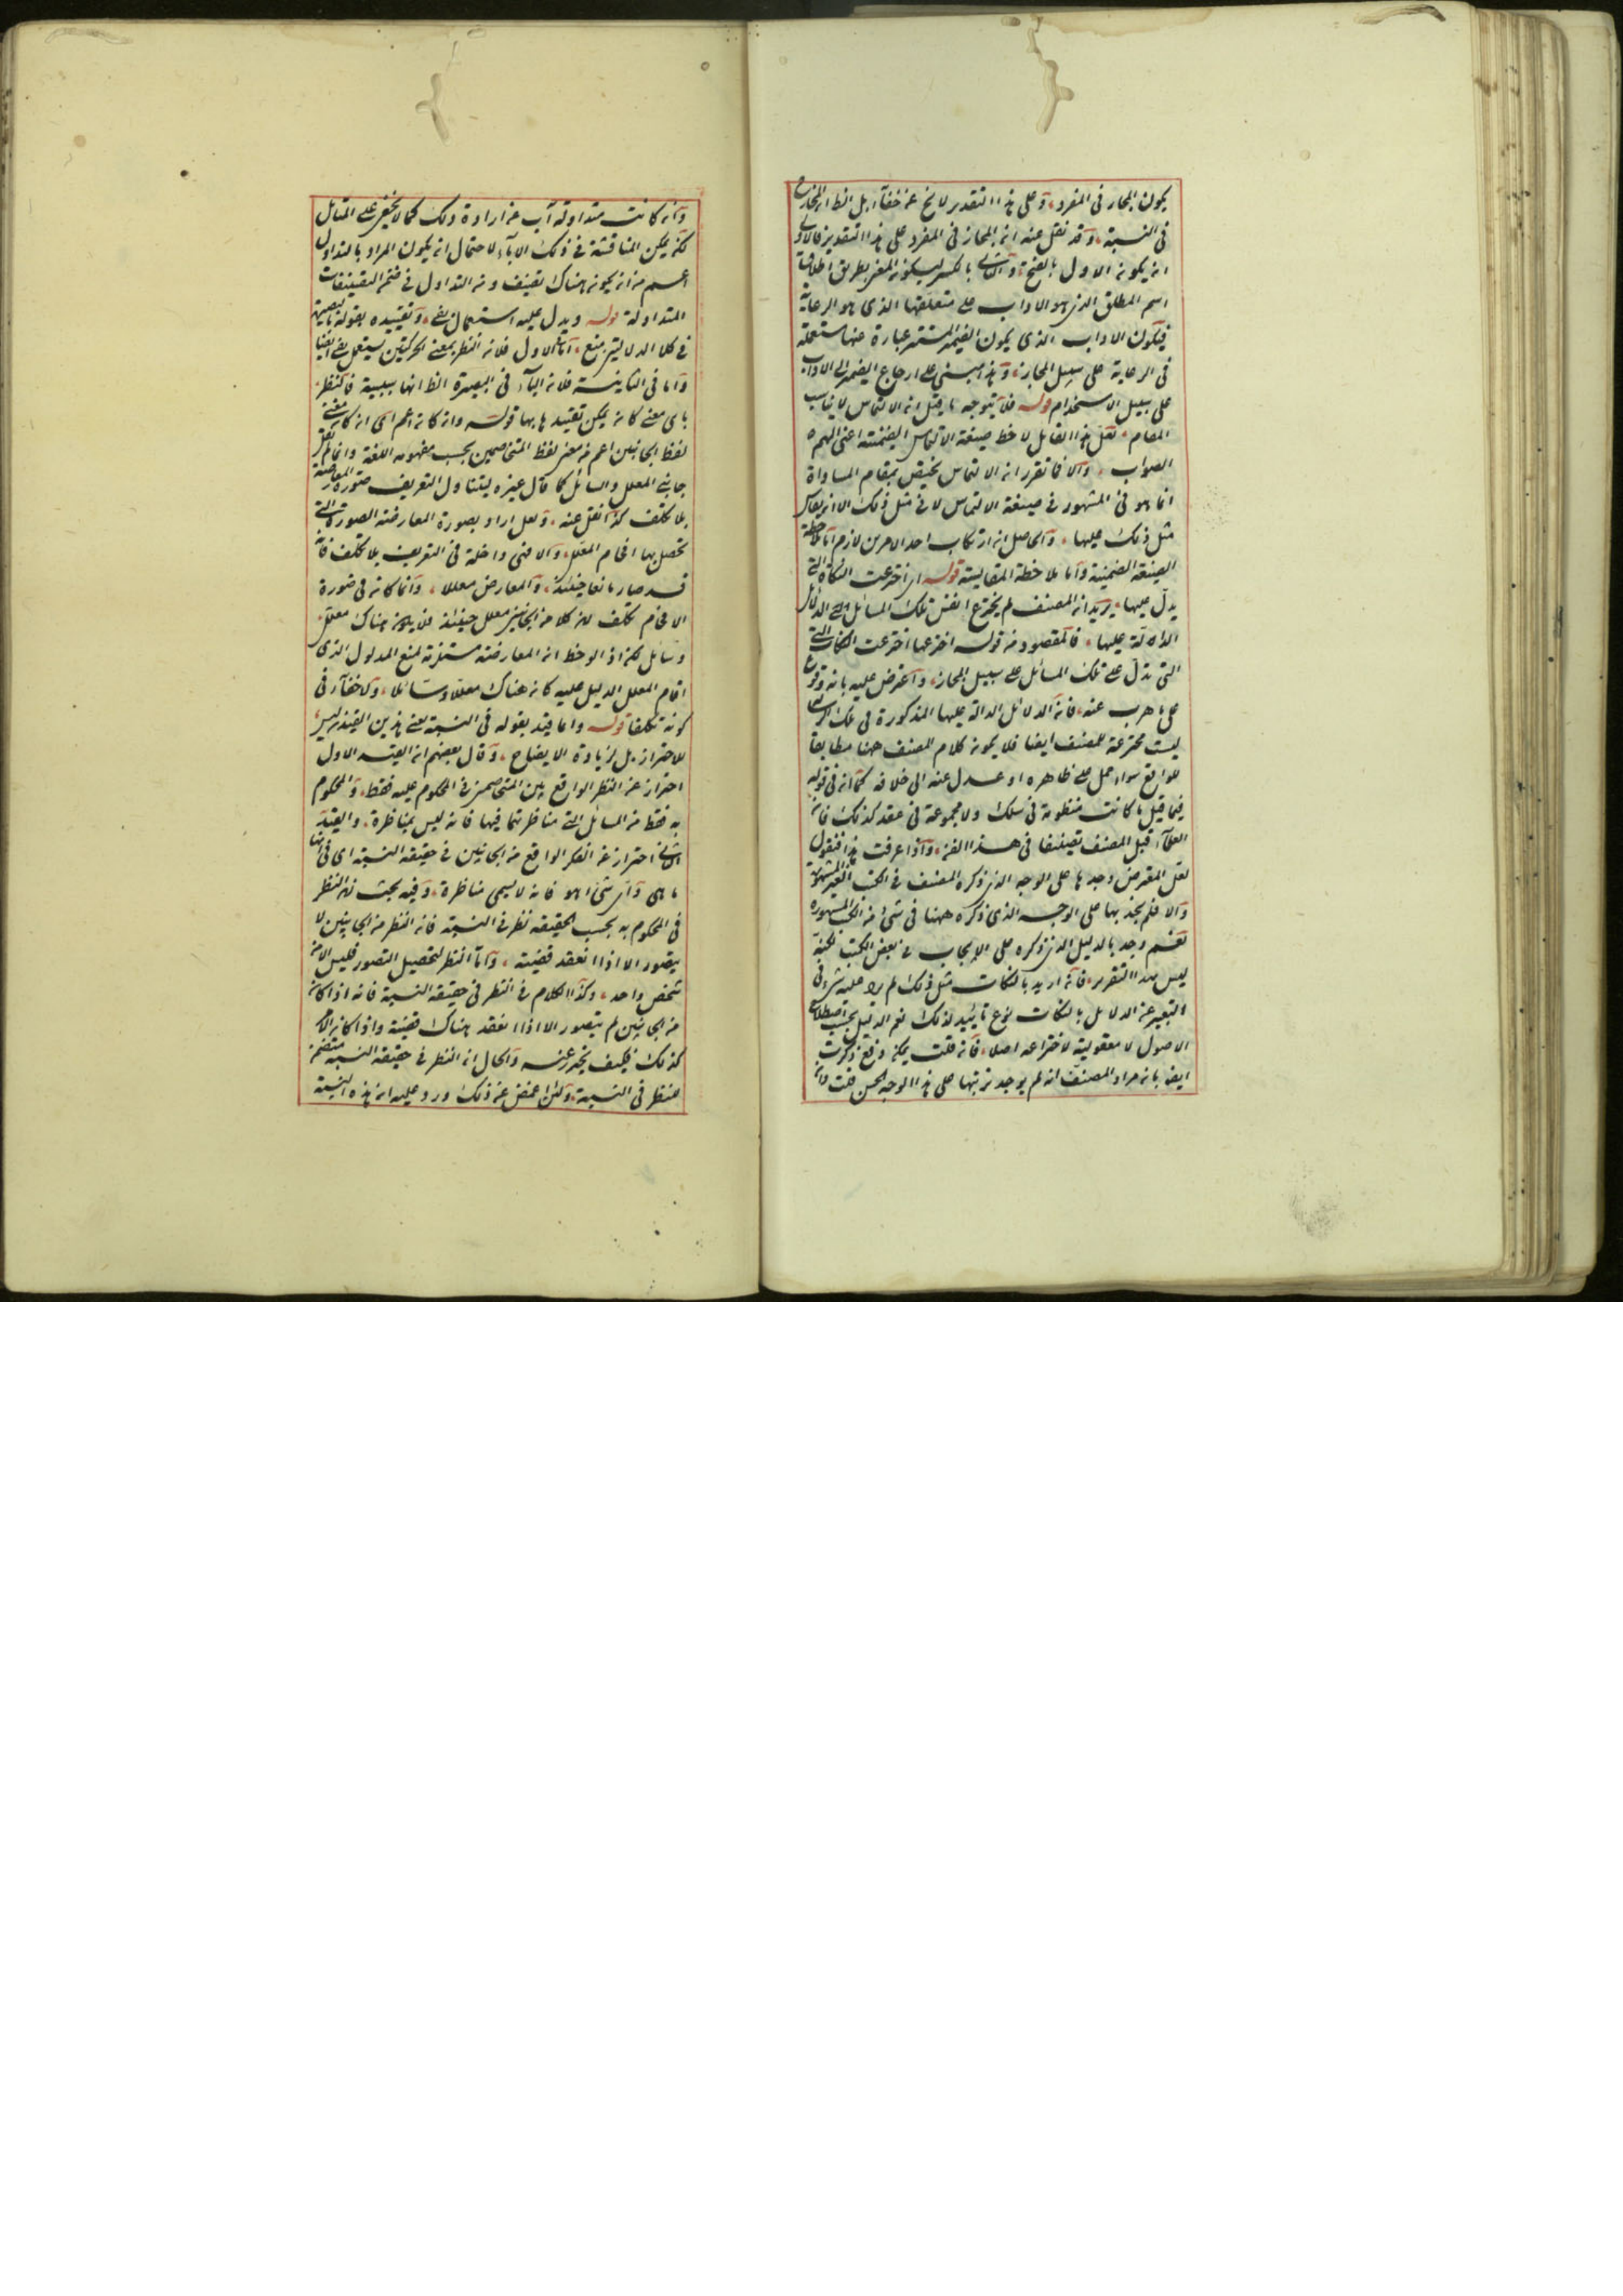 يكون المجاز في المفرد وعلى هذا التقدير لا يخ عن خفآء بل الظ ان المجاز
في النسبة وقد نقل عنه ان المجاز في المفرد على هذا التقدير فالاولى
ان يكون الاول بالفتح والثاني بالكسر ليكون المعنى بطريق اطلاق
اسم المطلق الذي هو الاداب على متعلقها الذي هو الرعاية
فيكون الاداب الذي يكون الضمير المستتر عبارة عنها مستعملة
في الرعاية على سبيل المجاز وهذا مبني على ارجاع الضمير الى الاداب
على سبيل الاستخدام قوله فلا يتوجه ما يقل ان الالتماس لا يناسب
المقام لعل هذا القايل لاحظ صيغة الالتماس الضمنية اعني الهمه
الصواب والا فما تقرر ان الالتماس يختص بمقام المساواة
انما هو في المشهور في صيغة الالتماس لا في مثل ذلك الا ان يقاس
مثل ذلك عليها والحاصل ان ارتكاب احد الامرين لازم اما ملاحظة
الصيغة الضمنية واما ملاحظة المقايسة قوله اي اخترعت النكات التي
يدل عليها يريد ان المصنف لم يخترع انفس تلك المسائل بل الدلائل
الدالة عليها فالمقصود من قوله اخترعها اخترعت النكات التي
التي تدل على تلك المسائل على سبيل المجاز واعترض عليه بانه وقوع
على ما هرب عنه فان الدلائل الدالة عليها المذكورة في تلك
ليست مخترعة للمصنف ايضا فلا يكون كلام المصنف ههنا مطابقا
للواقع سواء حمل على ظاهره او عدل عنه الى خلافه كما انه في قوله
فيما قيل ما كانت منظومة في سلك ولا مجموعة في عقد كذلك فان
العلمآء قبل المصنف تصنيفا في هذا الفن واذا عرفت هذا فنقول
لعل المعترض وجدها على الوجه الذي ذكره المصنف في الكتب الغير المشهورة
والا فلم يجد بها على الوجه الذي ذكره ههنا في شيء من الكتب المشهورة
نعم وجد بالدليل الذي ذكره على الايجاب في بعض الكتب لكنه
ليس بهذا التقرير فانه اريد بالنكات مثل ذلك لم يرد عليه شيء في
التعبير عن الدلايل بالنكات نوع تائيد لذلك نعم الدليل بحسب اصطلاح
الاصول لا معقولية لاختراعه اصلا فان قلت يمكن دفع ذكرت
ايضا بان مراد المصنف انه لم يوجد ترتبها على هذا الوجه الحسن قلت
وان كانت متداولة آب عن ارادة ذلك كما لا يخفى على المتامل
لكن يمكن المناقشة في ذلك الابآء لاحتمال ان يكون المراد بالتداول
اعم من ان يكون هناك تصنيف ومن التداول في ضمن التصنيفات
المتداولة قوله ويدل عليه استعمال بفي وتقييده بقوله بالبصيرة
في كلا الدلالتين منع اما في الاول فلان النظر بمعنى الحركتين يستعمل بفي ايضا
واما في الثانية فلان البآء في البصيرة الظ انها سببية فالنظر
باي معنى كان يمكن تقييدها بها قوله وان كان اعم اي ان كان معنى
لفظ الجانبين اعم من معنى لفظ المتخاصمين بحسب مفهوم اللغة وانما لم يقل
جانبي المعلل والسائل كما قال غيره ليتناول التعريف صورة المعارضة
بلا تكلف كذا نقل عنه ولعل اراد بصورة المعارضة الصورة التي
تحصل بها افحام المعلل والا فهي داخلة في التعريف بلا تكلف فانه
قد صار مانعا حينئذ والمعارض معللا وانما كان في صورة
الافحام تكلف لان كلا من الجانبين معلل حينئذ فلا يكون هناك معلل
وسايل لكن اذا لوحظ ان المعارضة مستلزمة لمنع المدلول الذي
اقام المعلل الدليل عليه كان هناك معللا وسائلا ولا خفآء في
كونه تكلفا قوله وانما قيد بقوله في النسبة يعني هذين القيدين ليس
للاحتراز بل لزيادة الايضاح وقال بعضهم ان القيد الاول
احتراز عن النظر الواقع بين المتخاصمين في المحكوم عليه فقط والمحكوم
به فقط من المسائل التي مناظرتما فيها فانه ليس بمناظرة والقيد
الثاني احتراز عن الفكر الواقع من الجانبين في حقيقة النسبة اي في انها
ما هي واي شيء هو فانه لا يسمى مناظرة وفيه بحث لان النظر
في المحكوم به بحسب الحقيقة نظر في النسبة فان النظر من الجانبين لا
يتصور الا اذا انعقد قضية واما النظر لتحصيل التصور فليس الا من
شخص واحد وكذا الكلام في النظر في حقيقة النسبة فانه اذا كان
من الجانبين لم يتصور الا اذا انعقد هناك قضية واذا كان الامر
كذلك فكيف يحترز عنه والحال ان النظر في حقيقة النسبة متضمن
للنظر في النسبة ولئن اغمض عن ذلك ورد عليه ان هذه النسبة